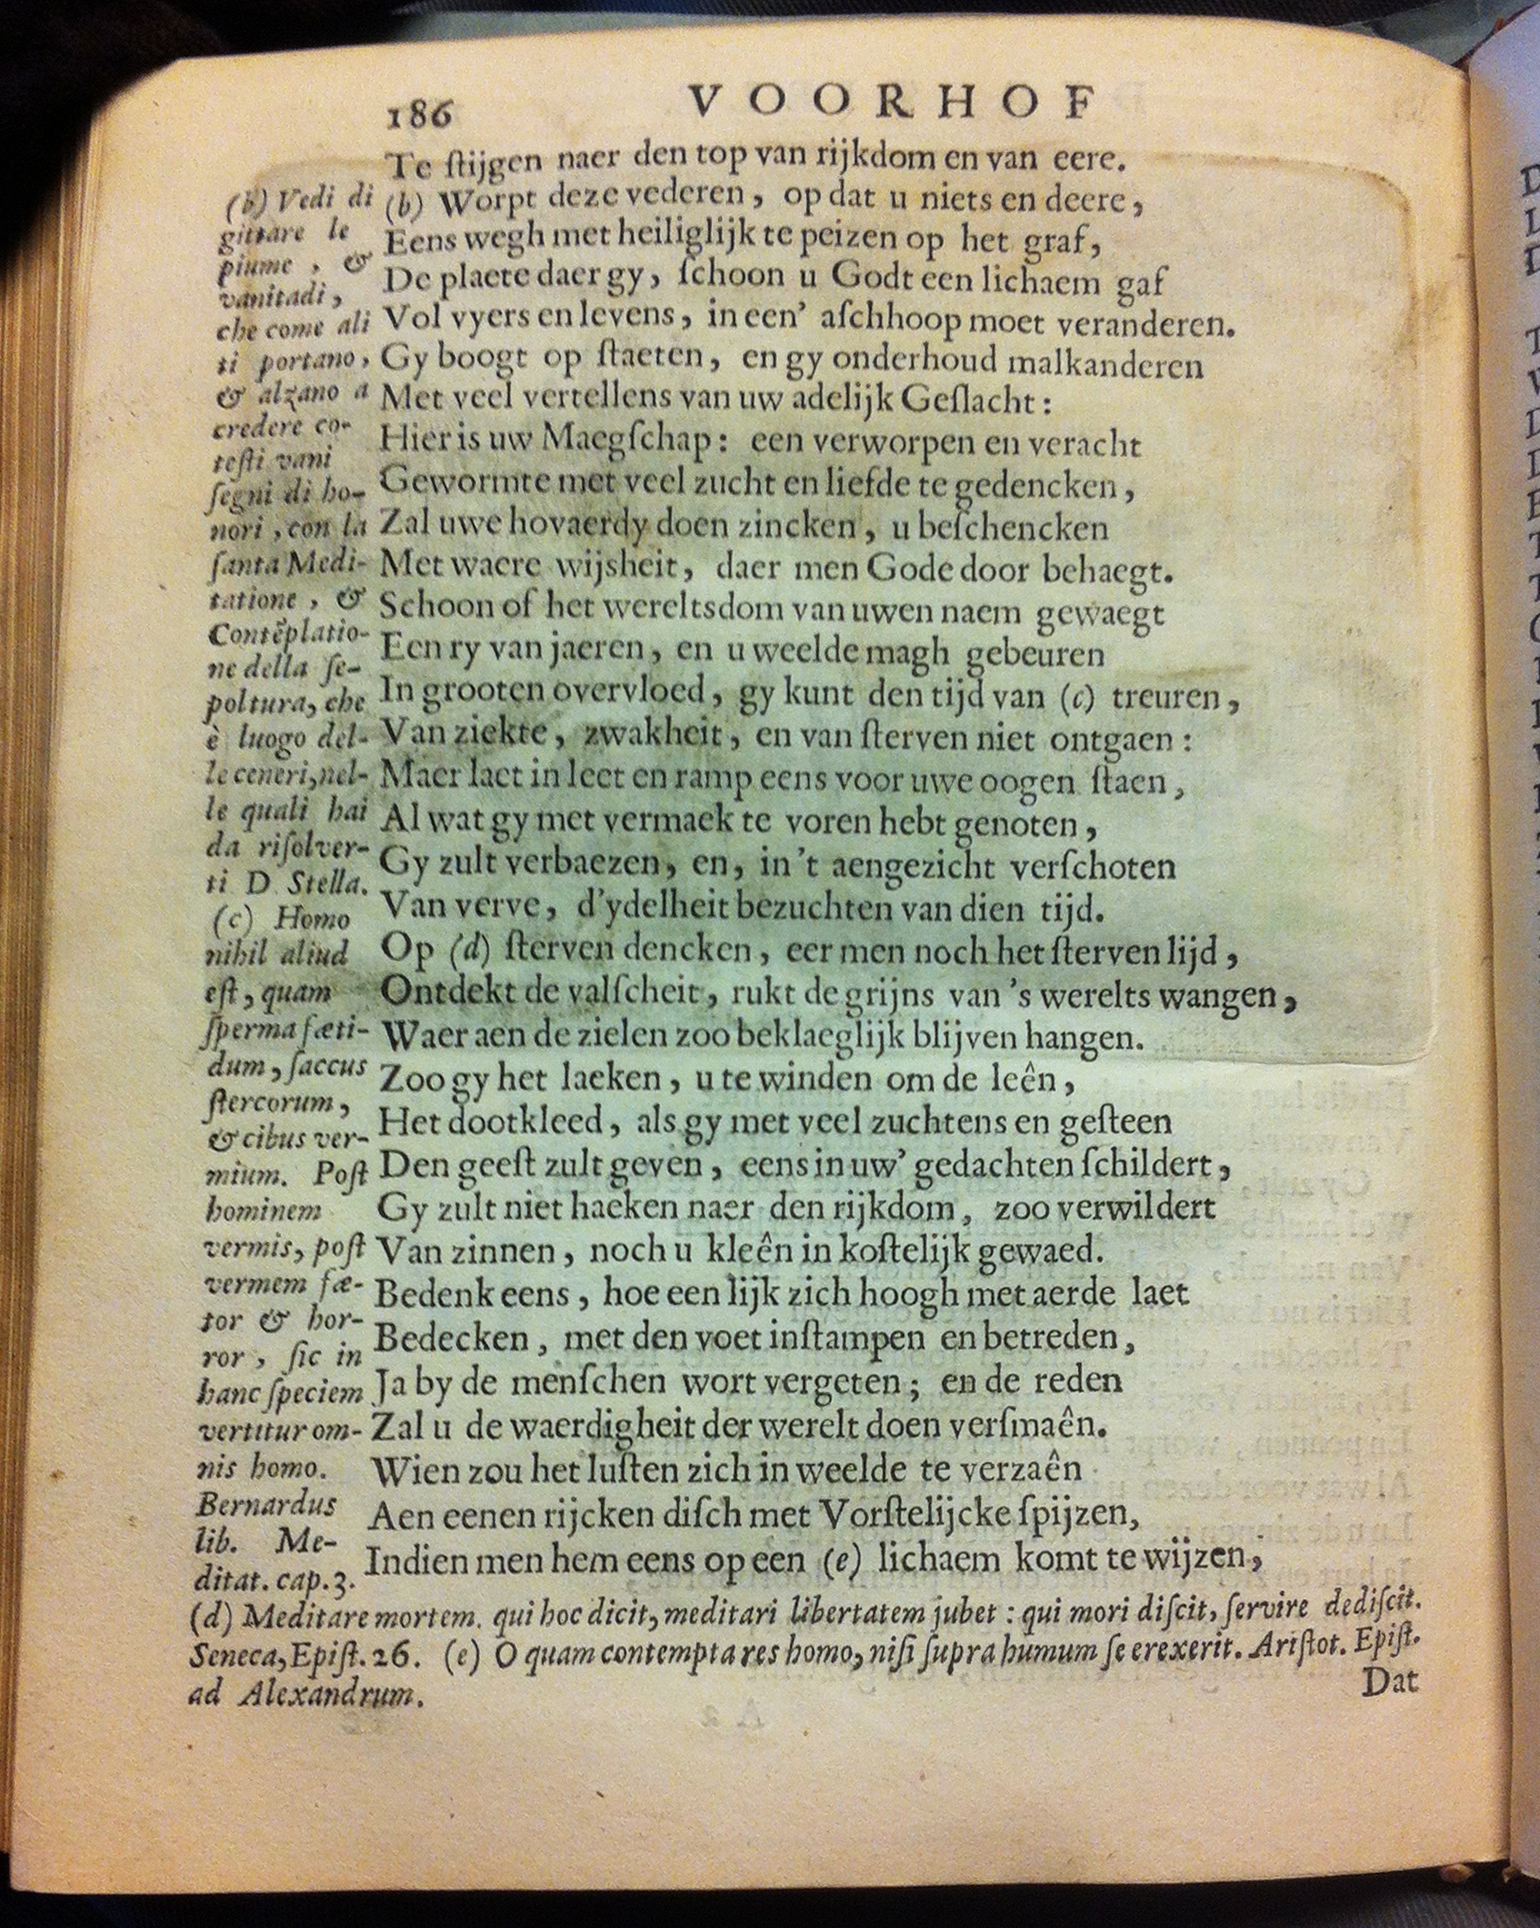 186
VOORHOF
Te ſtijgen naer den top van rijkdom en van eere.
(b) Worpt deze vederen, op dat u niets en deere,
Eens wegh met heiliglijk te peizen op het graf,
De plaete daer gy, ſchoon u Godt een lichaem gaf
Vol vyers en levens, in een' aſchhoop moet veranderen.
Gy boogt op ſtaeten, en gy onderhoud malkanderen
Met veel vertellens van uw adelijk Geſlacht:
Hier is uw Maegſchap: een verworpen en veracht
Gewormte met veel zucht en liefde te gedencken,
Zal uwe hovaerdy doen zincken, u beſchencken
Met waere wijsheit, daer men Gode door behaegt.
Schoon of het wereltsdom van uwen naem gewaegt
Een ry van jaeren, en u weelde magh gebeuren
In grooten overvloed, gy kunt den tijd van (c) treuren,
Van ziekte, zwakheit, en van ſterven niet ontgaen:
Maer laet in leet en ramp eens voor uwe oogen ſtaen,
Al wat gy met vermaek te voren hebt genoten,
Gy zult verbaezen, en, in 't aengezicht verſchoten
Van verve, d'ydelheit bezuchten van dien tijd.
Op (d) ſterven dencken, eer men noch het ſterven lijd,
Ontdekt de valſcheit, rukt de grijns van 's werelts wangen,
Waer aen de zielen zoo beklaeglijk blijven hangen.
Zoo gy het laeken, u te winden om de leên,
Het dootkleed, als gy met veel zuchtens en geſteen
Den geeſt zult geven, eens in uw' gedachten ſchildert,
Gy zult niet haeken naer den rijkdom, zoo verwildert
Van zinnen, noch u kleên in koſtelijk gewaed.
Bedenk eens, hoe een lijk zich hoogh met aerde laet
Bedecken, met den voet inſtampen en betreden,
Ja by de menſchen wort vergeten; en de reden
Zal u de waerdigheit der werelt doen verſmaên.
Wien zou het luſten zich in weelde te verzaên
Aen eenen rijcken diſch met Vorſtelijcke ſpijzen,
Indien men hem eens op een (e) lichaem komt te wijzen,
(b) Vedi di
gittare le
piume, &
vanitadi,
che come ali
ti portano,
& alzano a
credere co-
teſti vani
ſegni di ho-
nori, con la
ſanta Medi-
tatione, &
Contẽplatio-
ne della ſe-
poltura, che
è luogo del-
le ceneri, nel-
le quali hai
da riſolver-
ti D. Stella.
(c) Homo
nihil aliud
eſt, quam
ſperma fæti-
dum, ſaccus
ſtercorum,
& cibus ver-
mium. Poſt
hominem
vermis, poſt
vermem fæ-
tor & hor-
ror, ſic in
hanc ſpeciem
vertitur om-
nis homo.
Bernardus
lib. Me-
ditat. cap. 3.
(d) Meditare mortem. qui hoc dicit, meditari libertatem jubet: qui mori diſcit, ſervire dediſcit.
Seneca, Epiſt. 26. (e) O quam contempta res homo, niſi ſupra humum ſe erexerit. Ariſtot. Epiſt.
ad Alexandrum.
Dat